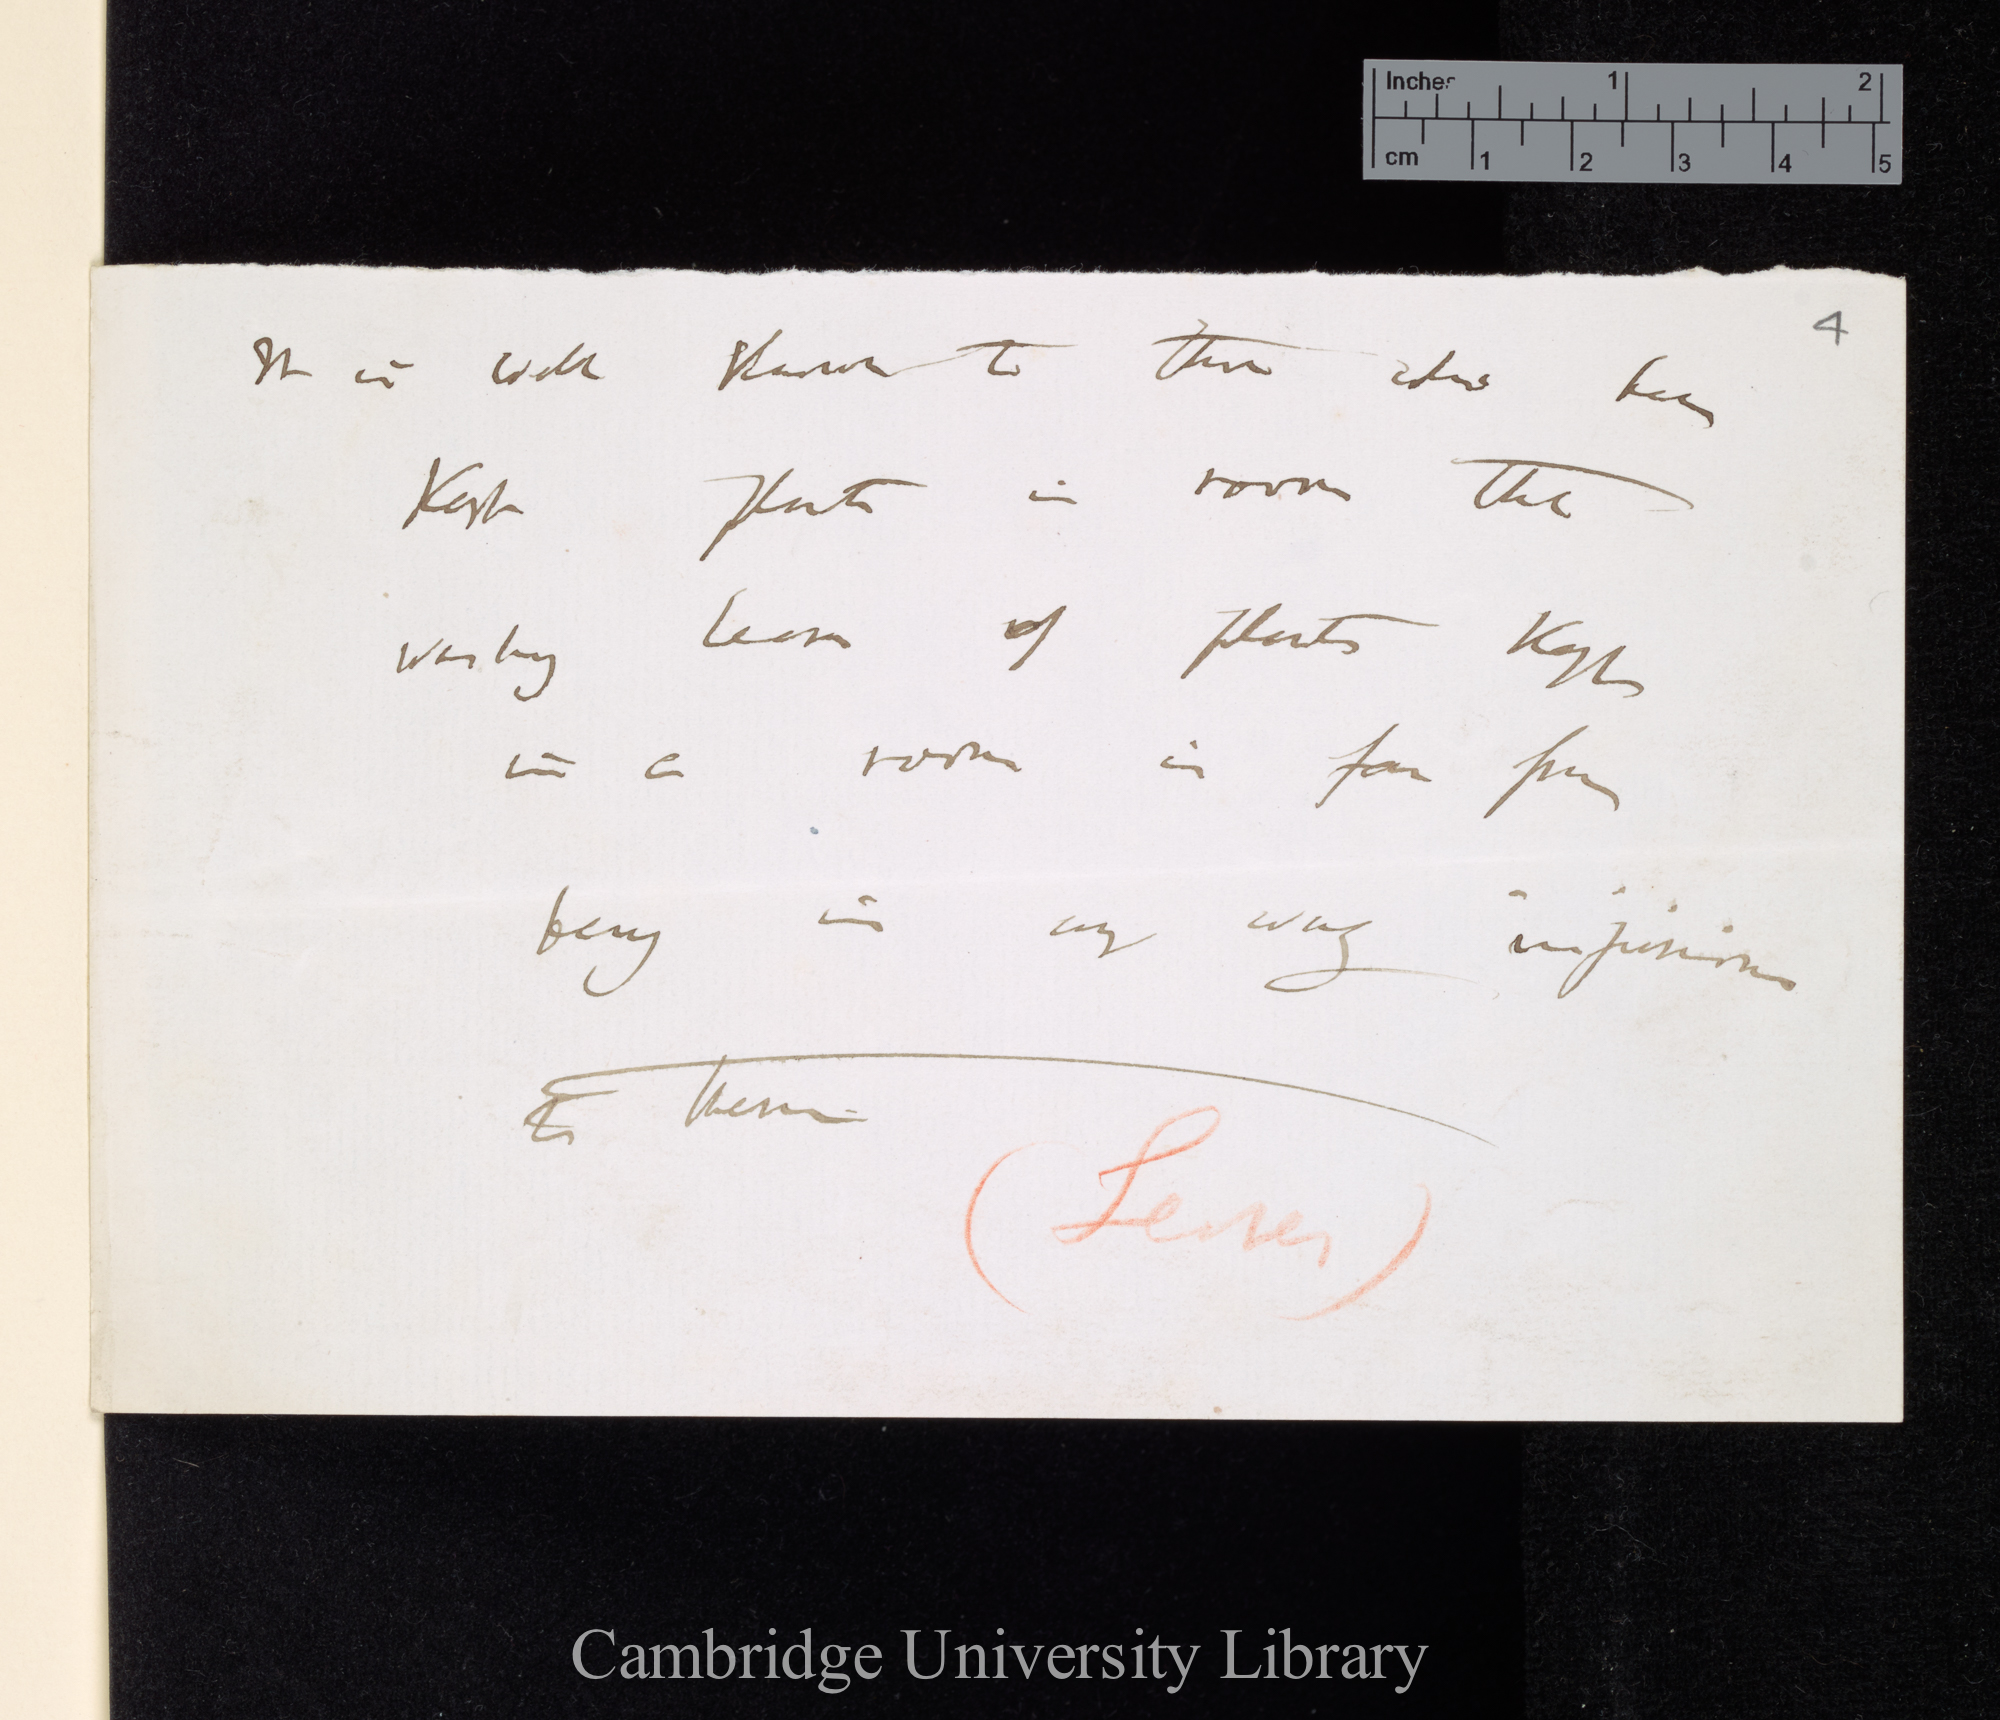 Inches 1 2
cm 1 2 3 4 5
4
It is well known to those who have
Kept plants in rooms that
washing leaves of plants Kept
in a room is far from
being in any way injurious
to them
(Leaves)
Cambridge University Library